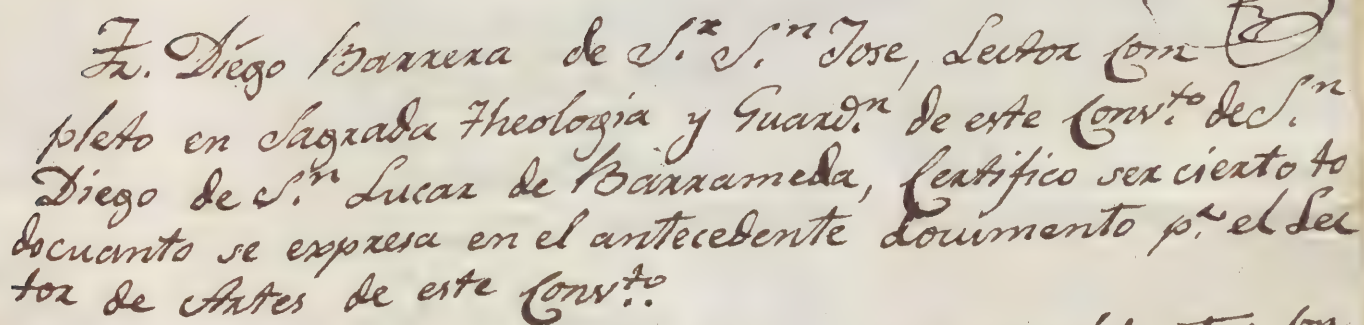 Fr. Diego Barrera de S.r S.n Jose, Lector com
pleto en Sagrada Theologia y Guard.n de este Conv.to de S.n
Diego de S.n Lucar de Barrameda, Certifico ser cierto to
docuanto se expresa en el antecedente documento p.r el Lec
tor de Artes de este Conv.to